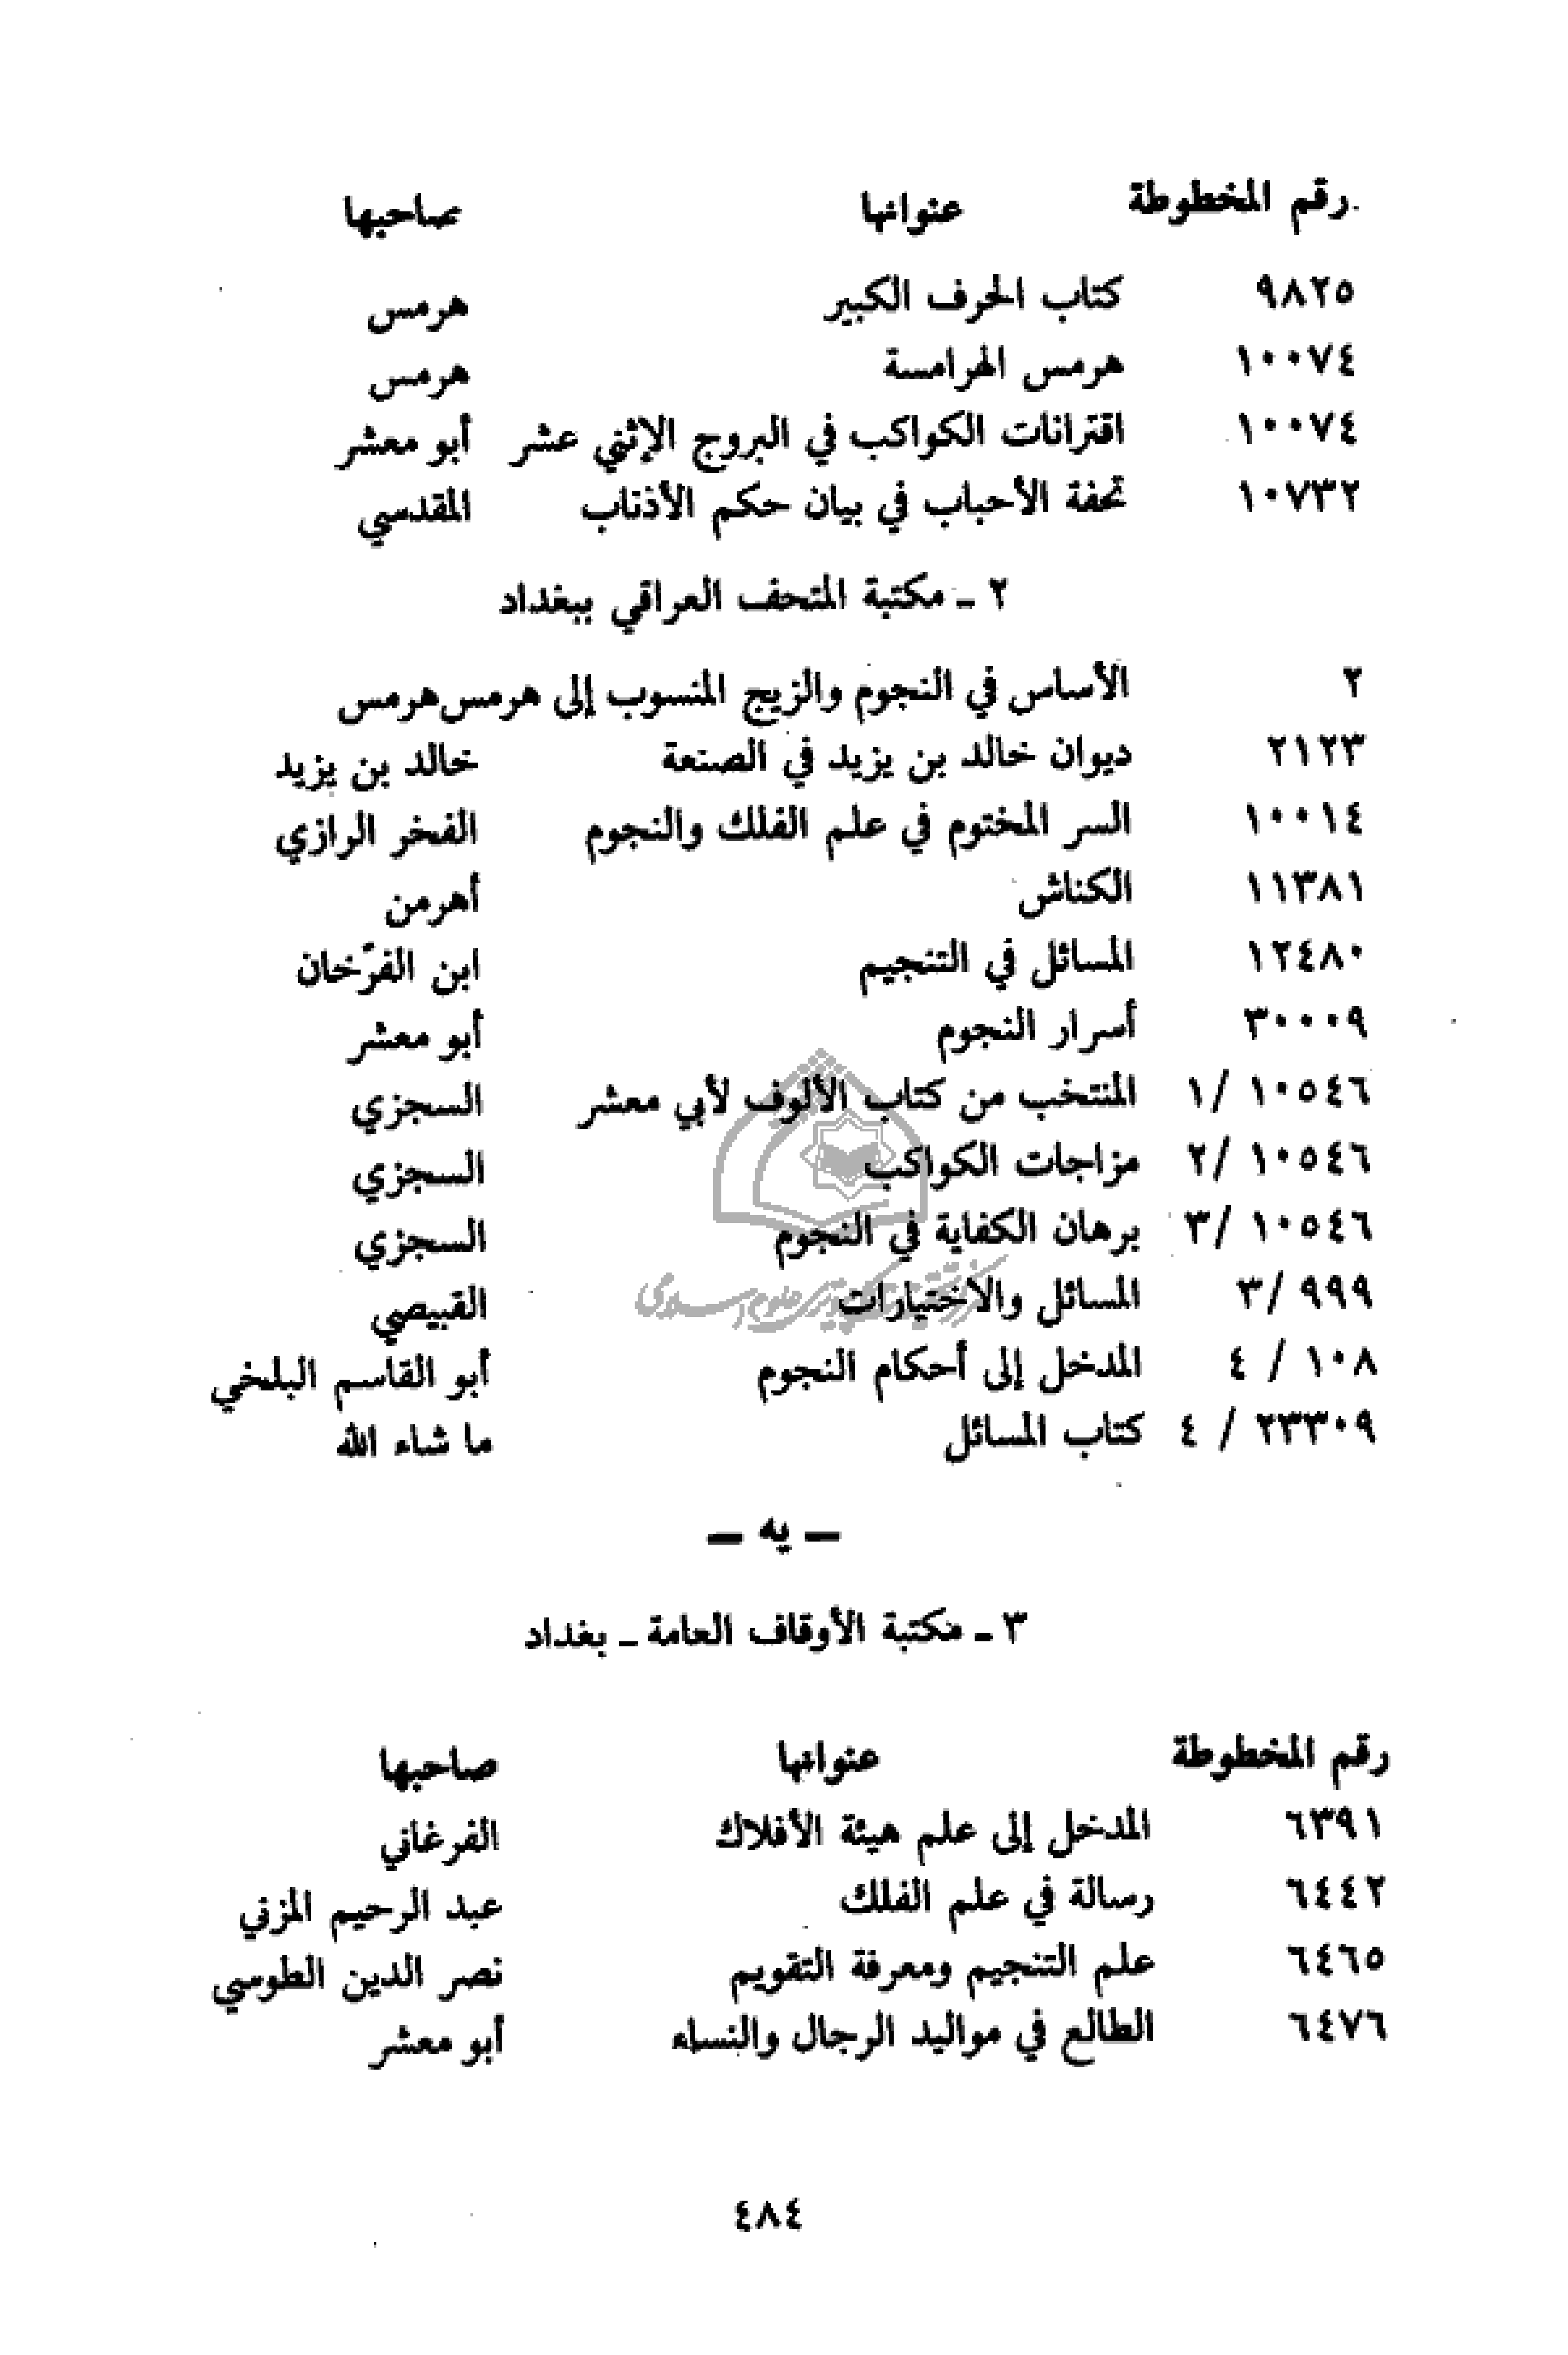 رقم المخطوطة عنوانها صاحبها
٩٨٢٥ كتاب الحرف الكبير هرمس
١٠٠٧٤ هرمس الهرامسة هرمس
١٠٠٧٤ اقترانات الكواكب في البروج الإثني عشر أبو معشر
١٠٧٣٢ تحفة الأحباب في بيان حكم الأذناب المقدسي
٢ ـ مكتبة المتحف العراقي ببغداد
٢ الأساس في النجوم والزيج المنسوب إلى هرمس هرمس
٢١٢٣ ديوان خالد بن يزيد في الصنعة خالد بن يزيد
١٠٠١٤ السر المختوم في علم الفلك والنجوم الفخر الرازي
١١٣٨١ الكناش أهرمن
١٢٤٨٠ المسائل في التنجيم ابن الفرّخان
٣٠٠٠٩ أسرار النجوم أبو معشر
١٠٥٤٦ /١ المنتخب من كتاب الألوف لأبي معشر السجزي
١٠٥٤٦ /٢ مزاجات الكواكب السجزي
١٠٥٤٦ /٣ برهان الكفاية في النجوم السجزي
٩٩٩ /٣ المسائل والاختيارات القبيصي
١٠٨ / ٤ المدخل إلى أحكام النجوم أبو القاسم البلخي
٢٣٣٠٩ / ٤ كتاب المسائل ما شاء الله
ـ يه ـ
٣ ـ مكتبة الأوقاف العامة ـ بغداد
رقم المخطوطة عنوانها صاحبها
٦٣٩١ المدخل إلى علم هيئة الأفلاك الفرغاني
٦٤٤٢ رسالة في علم الفلك عبد الرحيم المزني
٦٤٦٥ علم التنجيم ومعرفة التقويم نصر الدين الطوسي
٦٤٧٦ الطالع في مواليد الرجال والنساء أبو معشر
٤٨٤